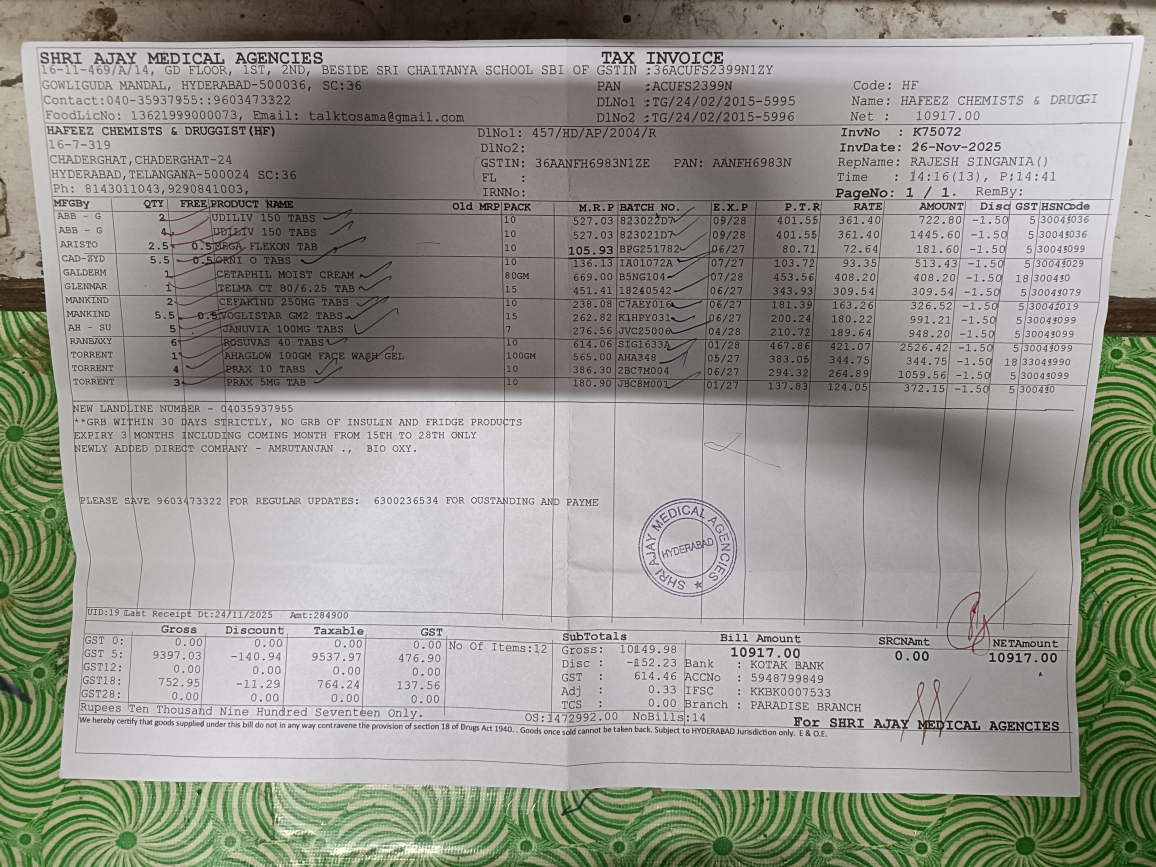 SHRI AJAY MEDICAL AGENCIES TAX INVOICE
16-11-469/A/14, GD FLOOR, 1ST, 2ND, BESIDE SRI CHAITANYA SCHOOL SBI OF GSTIN :36ACUFS2399N1ZY
GOWLIGUDA MANDAL, HYDERABAD-500036, SC:36 PAN :ACUFS2399N Code: HF
Contact:040-35937955::9603473322 DLNo1 :TG/24/02/2015-5995 Name: HAFEEZ CHEMISTS & DRUGGI
FoodLicNo: 13621999000073, Email: talktosama@gmail.com DLNo2 :TG/24/02/2015-5996 Net : 10917.00
HAFEEZ CHEMISTS & DRUGGIST(HF) DlNo1: 457/HD/AP/2004/R InvNo : K75072
16-7-319 DlNo2: InvDate: 26-Nov-2025
CHADERGHAT,CHADERGHAT-24 GSTIN: 36AANFH6983N1ZE PAN: AANFH6983N RepName: RAJESH SINGANIA()
HYDERABAD,TELANGANA-500024 SC:36 FL : Time : 14:16(13), P:14:41
Ph: 8143011043,9290841003, IRNNo: PageNo: 1 / 1. RemBy:
MFGBy QTY FREE PRODUCT NAME Old MRP PACK M.R.P BATCH NO. E.X.P P.T.R RATE AMOUNT Disc GST HSNCode
ABB - G 2 UDILIV 150 TABS 10 527.03 823022D7 09/28 401.55 361.40 722.80 -1.50 5 30049036
ABB - G 4 UDILIV 150 TABS 10 527.03 823021D7 09/28 401.55 361.40 1445.60 -1.50 5 30049036
ARISTO 2.5 0.5 MEGA FLEXON TAB 10 105.93 BPG251782 06/27 80.71 72.64 181.60 -1.50 5 30049099
CAD-ZYD 5.5 0.5 ORNI O TABS 10 136.13 IA01072A 07/27 103.72 93.35 513.43 -1.50 5 30049029
GALDERM 1 CETAPHIL MOIST CREAM 80GM 669.00 B5NG104 07/28 453.56 408.20 408.20 -1.50 18 300490
GLENMAR 1 TELMA CT 80/6.25 TAB 15 451.41 18240542 06/27 343.93 309.54 309.54 -1.50 5 30049079
MANKIND 2 CEFAKIND 250MG TABS 10 238.08 C7AEY016 06/27 181.39 163.26 326.52 -1.50 5 30042019
MANKIND 5.5 0.5 VOGLISTAR GM2 TABS 15 262.82 K1HPY031 06/27 200.24 180.22 991.21 -1.50 5 30049099
AH - SU 5 JANUVIA 100MG TABS 7 276.56 JVC25006 04/28 210.72 189.64 948.20 -1.50 5 30049099
RANBAXY 6 ROSUVAS 40 TABS 10 614.06 SIG1633A 01/28 467.86 421.07 2526.42 -1.50 5 30049099
TORRENT 1 AHAGLOW 100GM FACE WASH GEL 100GM 565.00 AHA348 05/27 383.05 344.75 344.75 -1.50 18 33049990
TORRENT 4 PRAX 10 TABS 10 386.30 2BC7M004 06/27 294.32 264.89 1059.56 -1.50 5 30049099
TORRENT 3 PRAX 5MG TAB 10 180.90 JBC8M001 01/27 137.83 124.05 372.15 -1.50 5 300490
NEW LANDLINE NUMBER - 04035937955
**GRB WITHIN 30 DAYS STRICTLY, NO GRB OF INSULIN AND FRIDGE PRODUCTS
EXPIRY 3 MONTHS INCLUDING COMING MONTH FROM 15TH TO 28TH ONLY
NEWLY ADDED DIRECT COMPANY - AMRUTANJAN ., BIO OXY.
PLEASE SAVE 9603473322 FOR REGULAR UPDATES: 6300236534 FOR OUSTANDING AND PAYME
SHRI AJAY MEDICAL AGENCIES
HYDERABAD
UID:19 Last Receipt Dt:24/11/2025 Amt:284900
Gross Discount Taxable GST SubTotals Bill Amount SRCNAmt NETAmount
GST 0: 0.00 0.00 0.00 0.00 No Of Items:12 Gross: 10149.98 10917.00 0.00 10917.00
GST 5: 9397.03 -140.94 9537.97 476.90 Disc : -152.23 Bank : KOTAK BANK
GST12: 0.00 0.00 0.00 0.00 GST : 614.46 ACCNo : 5948799849
GST18: 752.95 -11.29 764.24 137.56 Adj : 0.33 IFSC : KKBK0007533
GST28: 0.00 0.00 0.00 0.00 TCS : 0.00 Branch : PARADISE BRANCH
Rupees Ten Thousand Nine Hundred Seventeen Only. OS:1472992.00 NoBills:14 For SHRI AJAY MEDICAL AGENCIES
We hereby certify that goods supplied under this bill do not in any way contravene the provision of section 18 of Drugs Act 1940. . Goods once sold cannot be taken back. Subject to HYDERABAD Jurisdiction only. E & O.E.